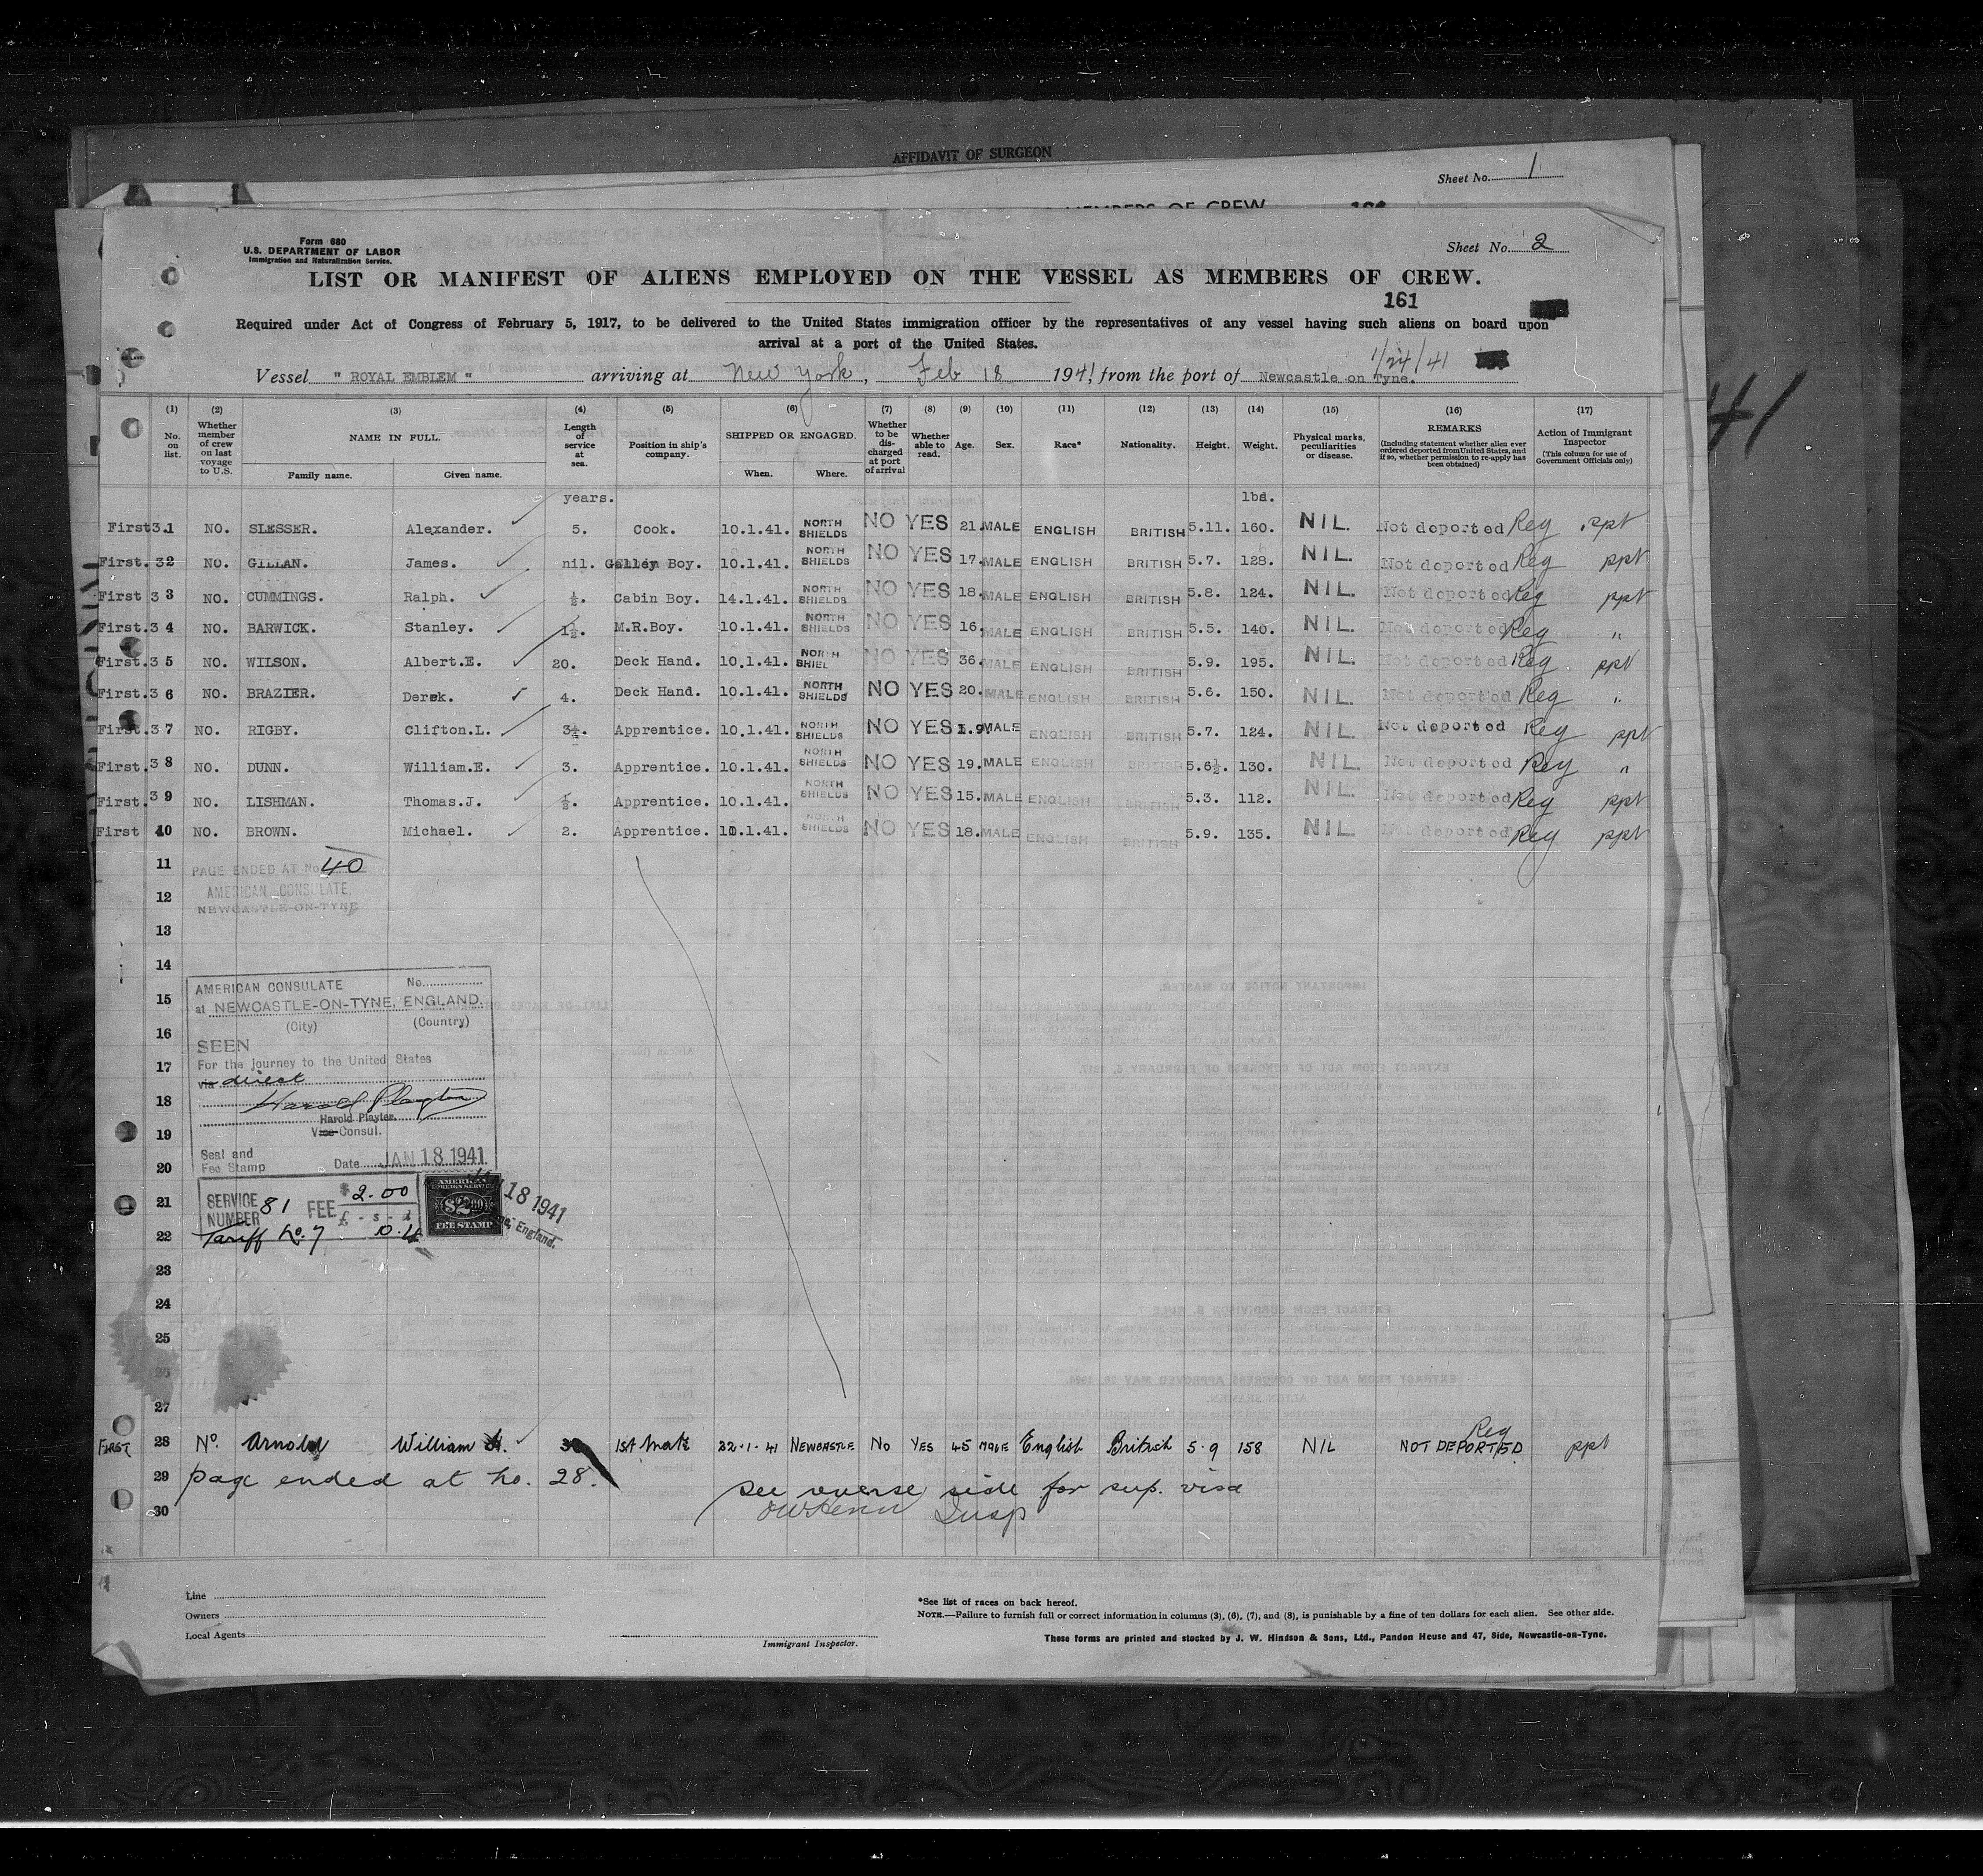 AFFIDAVIT OF SURGEON
Sheet No. 1
MEMBERS OF CREW
Form 680
U.S. DEPARTMENT OF LABOR
Immigration and Naturalization Service.
Sheet No. 2
LIST OR MANIFEST OF ALIENS EMPLOYED ON THE VESSEL AS MEMBERS OF CREW.
161
Required under Act of Congress of February 5, 1917, to be delivered to the United States immigration officer by the representatives of any vessel having such aliens on board upon
arrival at a port of the United States.
1/24/41
Vessel " ROYAL EMBLEM " arriving at New York, Feb 18 1941, from the port of Newcastle on Tyne.
41
(1) (2) (3) (4) (5) (6) (7) (8) (9) (10) (11) (12) (13) (14) (15) (16) (17)
No. on list. Whether member of crew on last voyage to U.S. NAME IN FULL. Family name. Given name. Length of service at sea. Position in ship's company. SHIPPED OR ENGAGED. When. Where. Whether to be discharged at port of arrival Whether able to read. Age. Sex. Race* Nationality. Height. Weight. Physical marks, peculiarities or disease. REMARKS (Including statement whether alien ever ordered deported from United States, and if so, whether permission to re-apply has been obtained) Action of Immigrant Inspector (This column for use of Government Officials only)
years. lbs.
First 31 NO. SLESSER. Alexander. 5. Cook. 10.1.41. NORTH SHIELDS NO YES 21. MALE ENGLISH BRITISH 5.11. 160. NIL. Not deported Reg ppt
First. 32 NO. GILLAN. James. nil. Galley Boy. 10.1.41. NORTH SHIELDS NO YES 17. MALE ENGLISH BRITISH 5.7. 128. NIL. Not deported Reg ppt
First 33 NO. CUMMINGS. Ralph. ½. Cabin Boy. 14.1.41. NORTH SHIELDS NO YES 18. MALE ENGLISH BRITISH 5.8. 124. NIL. Not deported Reg ppt
First. 34 NO. BARWICK. Stanley. 1½. M.R.Boy. 10.1.41. NORTH SHIELDS NO YES 16. MALE ENGLISH BRITISH 5.5. 140. NIL. Not deported Reg "
First. 35 NO. WILSON. Albert.E. 20. Deck Hand. 10.1.41. NORTH SHIEL NO YES 36. MALE ENGLISH BRITISH 5.9. 195. NIL. Not deported Reg ppt
First. 36 NO. BRAZIER. Derek. 4. Deck Hand. 10.1.41. NORTH SHIELDS NO YES 20. MALE ENGLISH BRITISH 5.6. 150. NIL. Not deported Reg "
First. 37 NO. RIGBY. Clifton.L. 3½. Apprentice. 10.1.41. NORTH SHIELDS NO YES 19. MALE ENGLISH BRITISH 5.7. 124. NIL. Not deported Reg ppt
First. 38 NO. DUNN. William.E. 3. Apprentice. 10.1.41. NORTH SHIELDS NO YES 19. MALE ENGLISH BRITISH 5.6½. 130. NIL. Not deported Reg "
First. 39 NO. LISHMAN. Thomas.J. ½. Apprentice. 10.1.41. NORTH SHIELDS NO YES 15. MALE ENGLISH BRITISH 5.3. 112. NIL. Not deported Reg ppt
First 40 NO. BROWN. Michael. 2. Apprentice. 10.1.41. NORTH SHIELDS NO YES 18. MALE ENGLISH BRITISH 5.9. 135. NIL. Not deported Reg ppt
11 PAGE ENDED AT No. 40
AMERICAN CONSULATE,
12 NEWCASTLE-ON-TYNE
13
14
AMERICAN CONSULATE No.
15 at NEWCASTLE-ON-TYNE, ENGLAND.
(City) (Country)
16 SEEN
17 For the journey to the United States
via direct
18 Harold Playter
Harold Playter.
19 Vice Consul.
Seal and Fee Stamp Date JAN 18 1941
20
21 SERVICE NUMBER 81 FEE $2.00 £ - s - d
AMERICAN FOREIGN SERVICE $2.00 FEE STAMP
18 1941
England.
22 Tariff No. 7
23
24
25
26
27
Reg
First 28 No. Arnold William H. 1st Mate 22-1-41 NEWCASTLE No YES 45 MALE English British 5.9 158 NIL NOT DEPORTED ppt
29 page ended at no. 28. see reverse side for sup. visa
30 Insp
Line
Owners
Local Agents
Immigrant Inspector.
*See list of races on back hereof.
NOTE.—Failure to furnish full or correct information in columns (3), (6), (7), and (8), is punishable by a fine of ten dollars for each alien. See other side.
These forms are printed and stocked by J. W. Hindson & Sons, Ltd., Pandon House and 47, Side, Newcastle-on-Tyne.